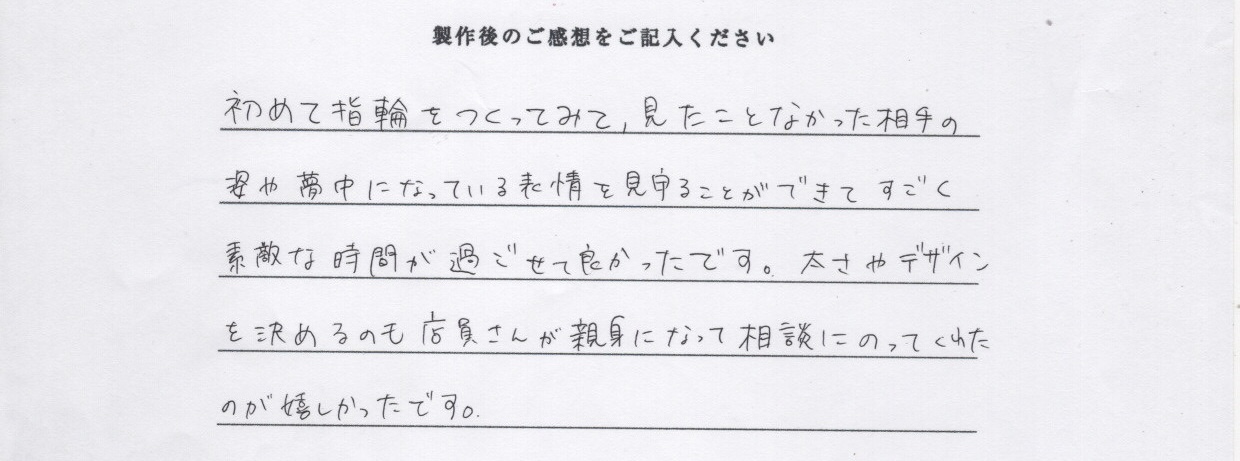 製作後のご感想をご記入ください
初めて指輪をつくってみて,見たことなかった相手の
姿や夢中になっている表情を見守ることができてすごく
素敵な時間が過ごせて良かったです。太さやデザイン
を決めるのも店員さんが親身になって相談にのってくれた
のが嬉しかったです。